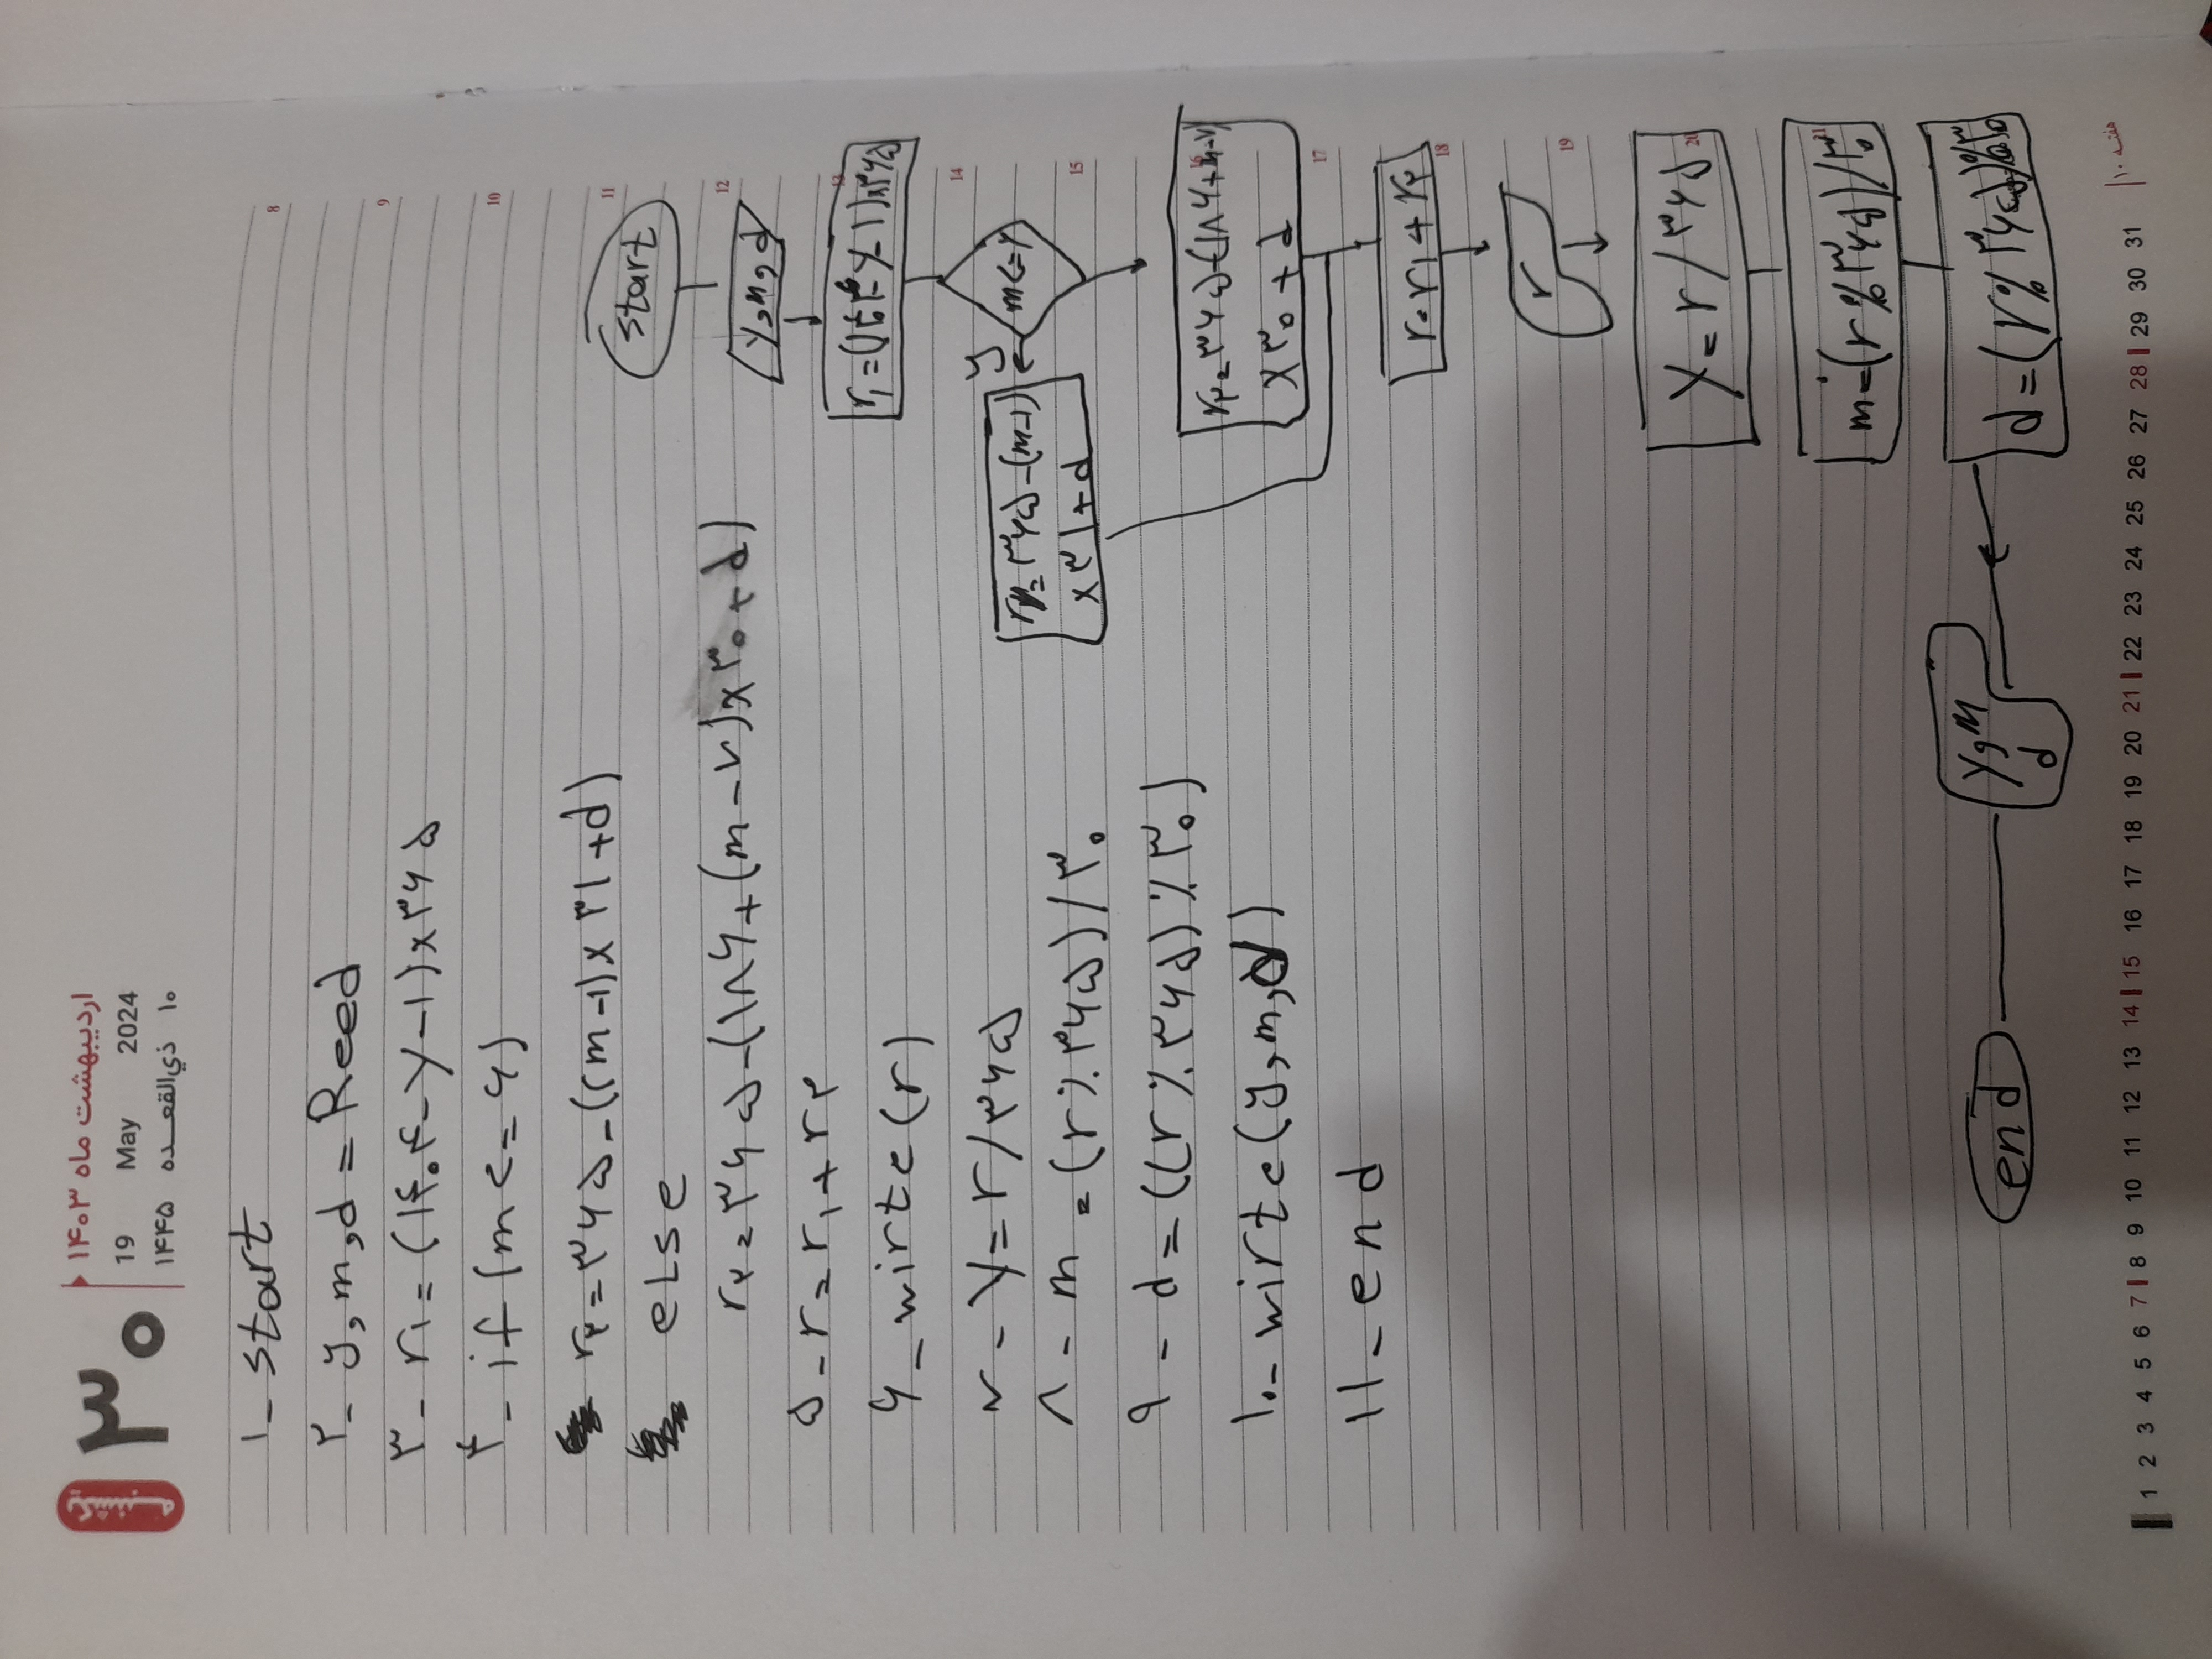 یکشنبه
۳۰
اردیبهشت ماه ۱۴۰۳
19 May 2024
۱۰ ذي‌القعده ۱۴۴۵
۱_ start
۲_ y,m,d = Reed
۳_ r۱ = (۱۴۰۴-y-۱)x۳۶۵
۴_ if (m <= ۶)
r۲=۳۶۵-((m-۱)x ۳۱+d)
else
r۲=۳۶۵-(۱۸۶+(m-۷)x۳۰+d)
۵_r=r۱+r۲
۶_wirte(r)
۷_y=r/۳۶۵
۸_m=(r٪۳۶۵)/۳۰
۹_d=((r٪۳۶۵)٪۳۰)
۱۰_wirte(y,m,d)
۱۱_end
start
y,m,d
r۱=(۱۴۰۴-y-۱)x۳۶۵
m<=۶
y
r۲=۳۶۵-(m-۱)
x۳۱+d
r۲=۳۶۵-(۱۸۶+m-۷)
x۳۰+d
r=r۱+r۲
r
y=r/۳۶۵
m=(r%۳۶۵)/۳۰
d=(r%۳۶۵)%۳۰
y,m
d
end
8
9
10
11
12
13
14
15
16
17
18
19
20
21
1 2 3 4 5 6 7 8 9 10 11 12 13 14 15 16 17 18 19 20 21 22 23 24 25 26 27 28 29 30 31
هفته ۱۰